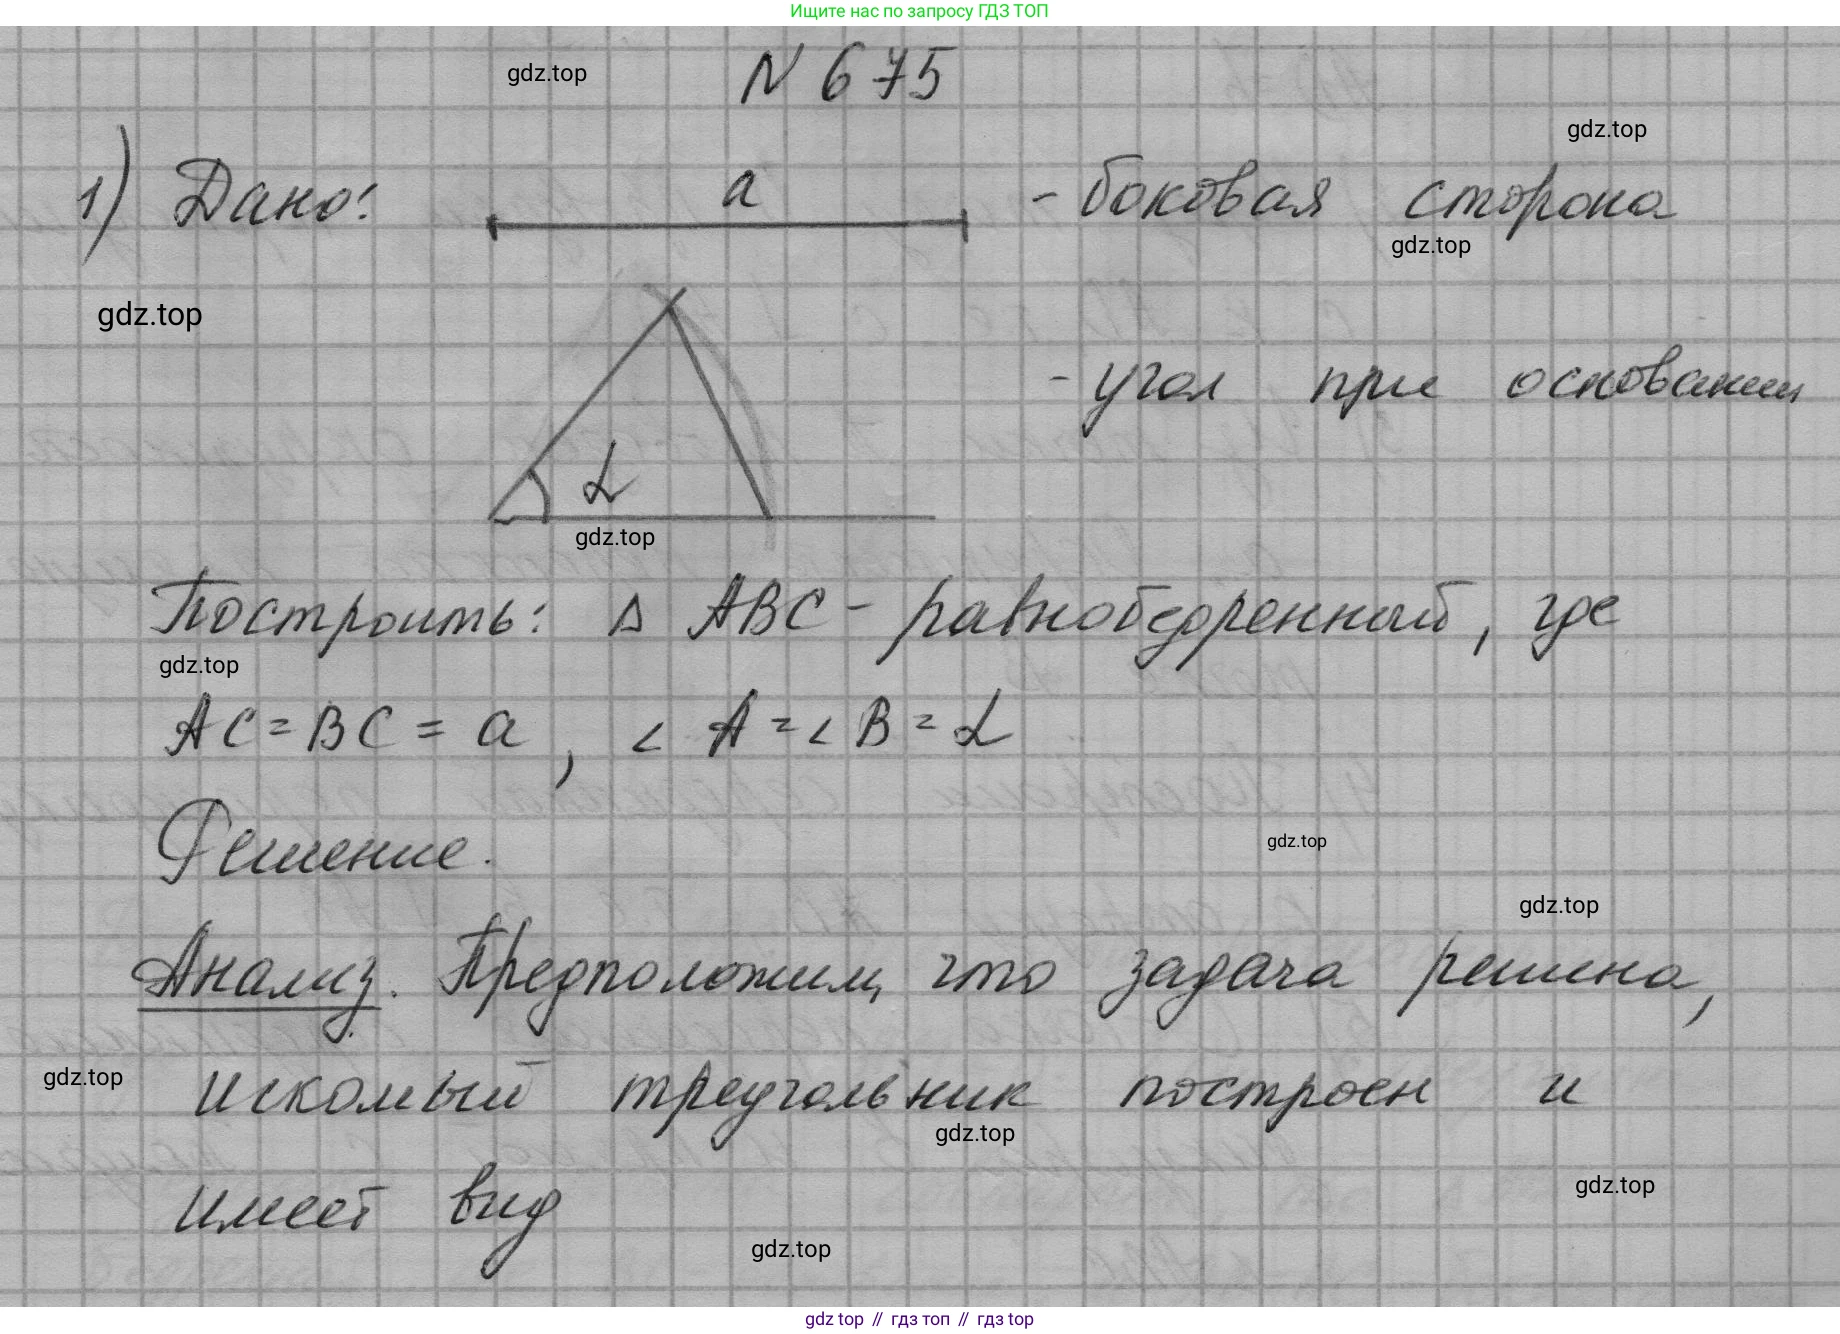 Ищите нас по запросу ГДЗ ТОП
N 675
gdz.top
gdz.top
1) Дано: a - боковая сторона
gdz.top
gdz.top
- угол при основании
α
gdz.top
Построить: Δ ABC - равнобедренный, где
gdz.top
AC = BC = a , ∠ A = ∠ B = α
Решение.
gdz.top
gdz.top
Анализ. Предположим, что задача решена,
gdz.top
искомый треугольник построен и
gdz.top
имеет вид
gdz.top
gdz.top
gdz top // гдз топ // гдз top